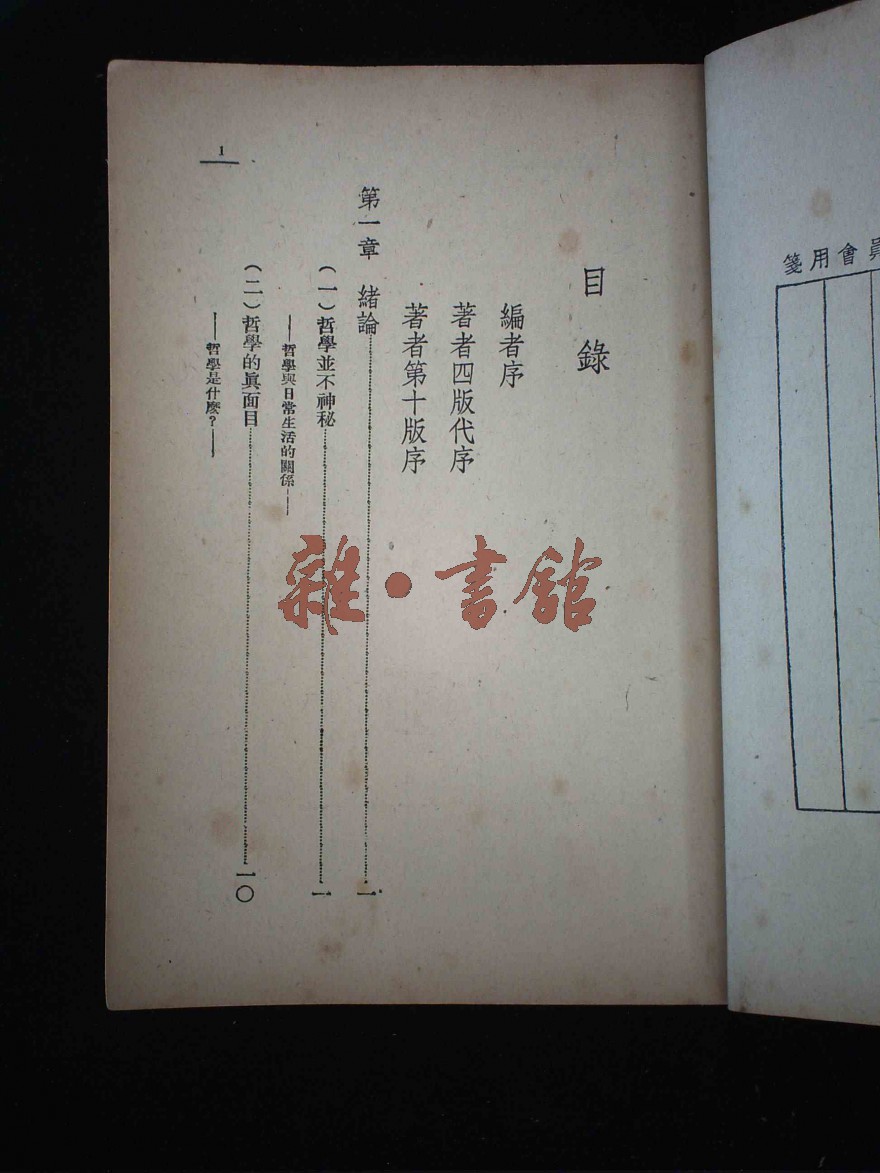 員會用箋
目錄
編者序
著者四版代序
著者第十版序
第一章 緒論……一
(一)哲學並不神秘……一
——哲學與日常生活的關係——
(二)哲學的眞面目……一〇
——哲學是什麽?——
1
雜·書館